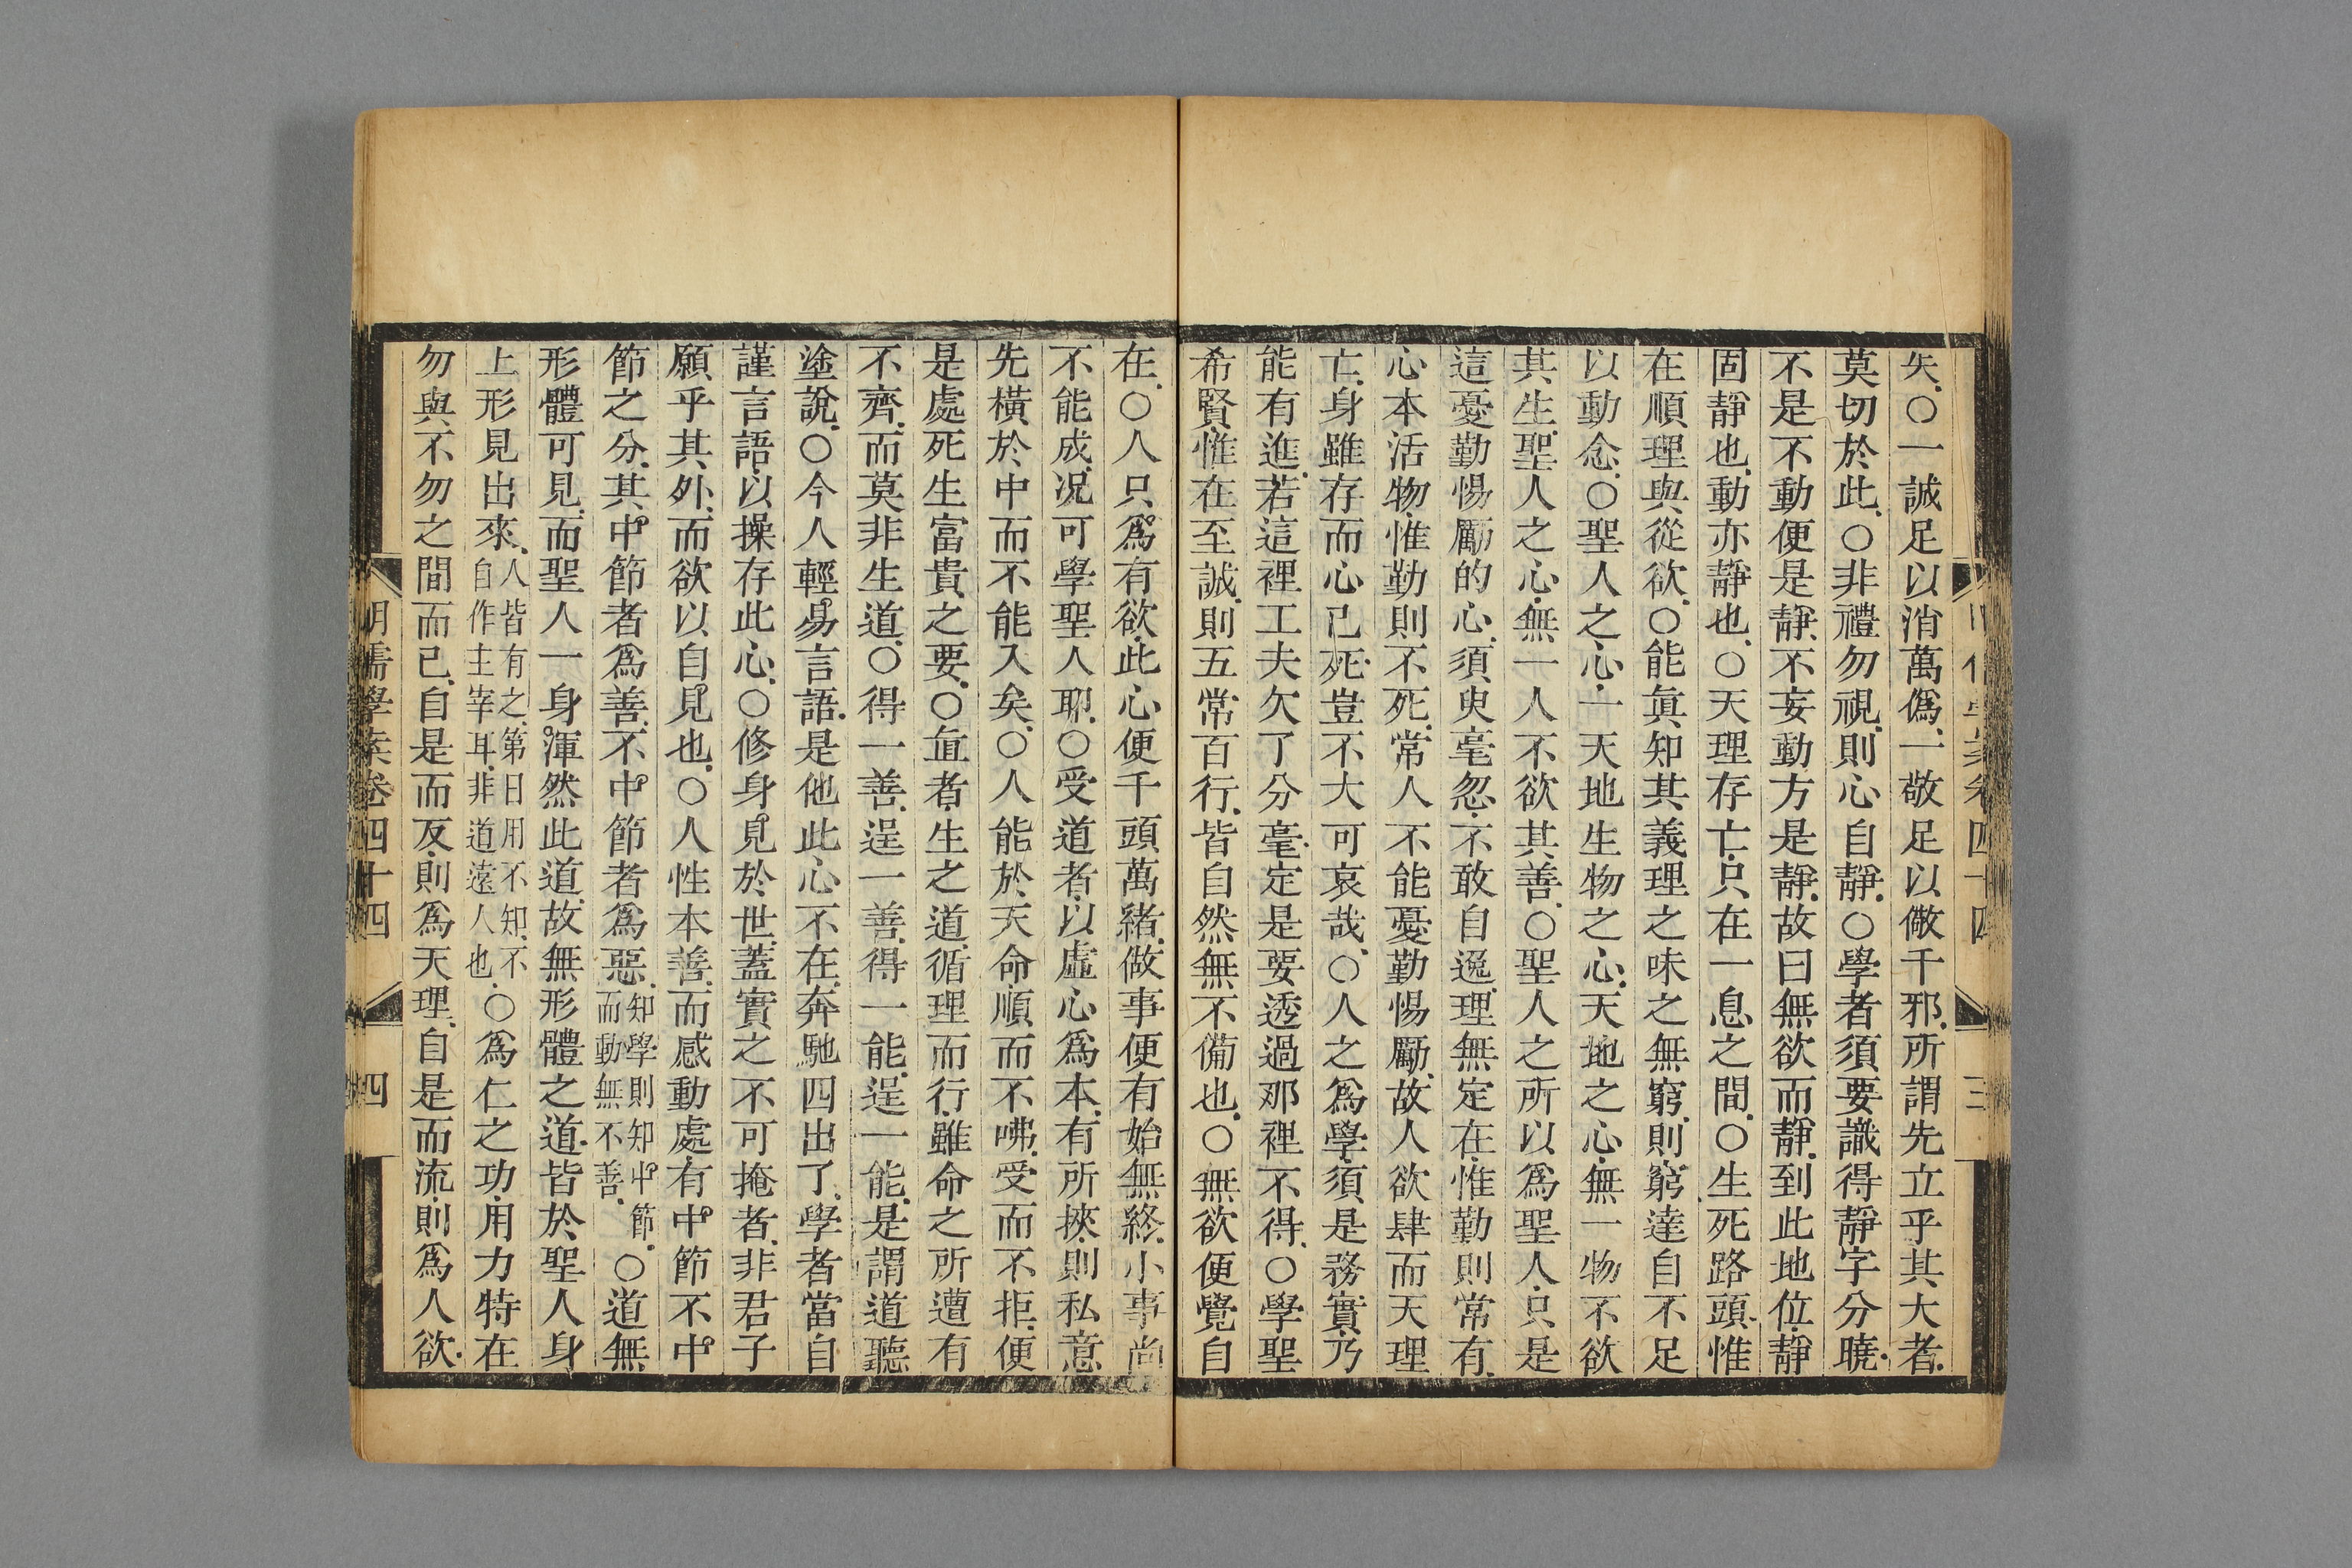 矣○一誠足以消萬僞一敬足以敵千邪所謂先立乎其大者
莫切於此○非禮勿視則心自靜○學者須要識得靜字分曉
不是不動便是靜不妄動方是靜故曰無欲而靜到此地位靜
固靜也動亦靜也○天理存亡只在一息之間○生死路頭惟
在順理與從欲○能眞知其義理之味之無窮則窮達自不足
以動念○聖人之心一天地生物之心天地之心無一物不欲
其生聖人之心無一人不欲其善○聖人之所以爲聖人只是
這憂勤惕勵的心須臾毫忽不敢自逸理無定在惟勤則常有
心本活物惟勤則不死常人不能憂勤惕勵故人欲肆而天理
亡身雖存而心已死豈不大可哀哉○人之爲學須是務實乃
能有進若這裡工夫欠了分毫定是要透過那裡不得○學聖
希賢惟在至誠則五常百行皆自然無不備也○無欲便覺自
在○人只爲有欲此心便千頭萬緒做事便有始無終小事尚
不能成况可學聖人耶○受道者以虛心爲本有所挾則私意
先橫於中而不能入矣○人能於天命順而不咈受而不拒便
是處死生富貴之要○直者生之道循理而行雖命之所遭有
不齊而莫非生道○得一善逞一善得一能逞一能是謂道聽
塗說○今人輕易言語是他此心不在奔馳四出了學者當自
謹言語以操存此心○修身見於世蓋實之不可掩者非君子
願乎其外而欲以自見也○人性本善而感動處有中節不中
節之分其中節者爲善不中節者爲惡知學則知中節而動無不善○道無
形體可見而聖人一身渾然此道故無形體之道皆於聖人身
上形見出來人皆有之第日用不知不自作主宰耳非道遠人也○爲仁之功用力特在
勿與不勿之間而已自是而反則爲天理自是而流則爲人欲
明儒學案卷四十四 四